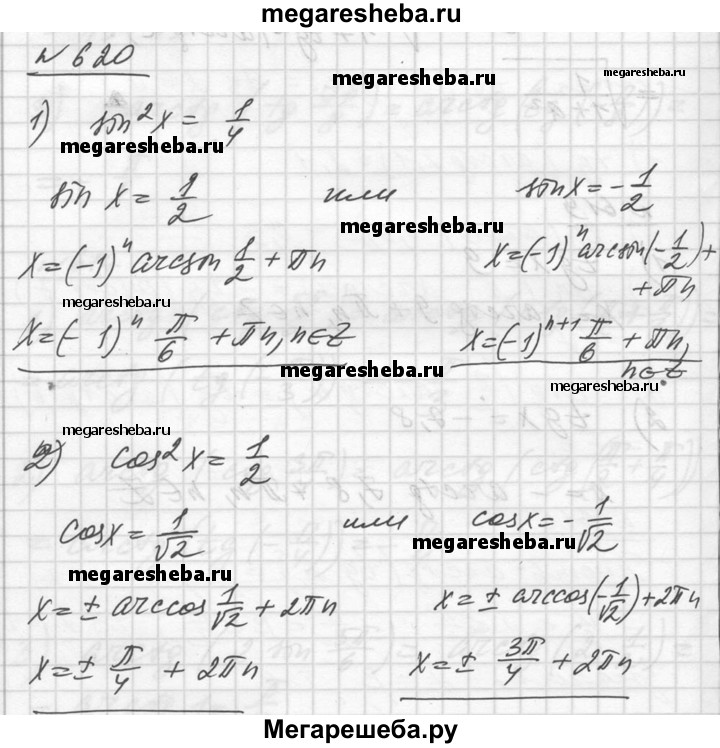 megaresheba.ru
№ 620
megaresheba.ru megaresheba.ru
1) sin²x = 1/4
megaresheba.ru
sin x = 1/2 или sin x = -1/2
megaresheba.ru
x = (-1)ⁿ arcsin 1/2 + πn x = (-1)ⁿ arcsin(-1/2) +
+ πn
megaresheba.ru
x = (-1)ⁿ π/6 + πn, n∈Z x = (-1)ⁿ⁺¹ π/6 + πn,
n∈Z
megaresheba.ru megaresheba.ru
megaresheba.ru
2) cos²x = 1/2
cos x = 1/√2 или cos x = -1/√2
megaresheba.ru megaresheba.ru
x = ± arccos 1/√2 + 2πn x = ± arccos(-1/√2) + 2πn
x = ± π/4 + 2πn x = ± 3π/4 + 2πn
Мегарешеба.ру